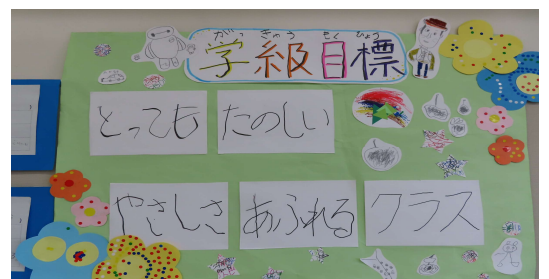 がっきゅうもくひょう
学級目標
とっても たのしい
やさしさ あふれる クラス